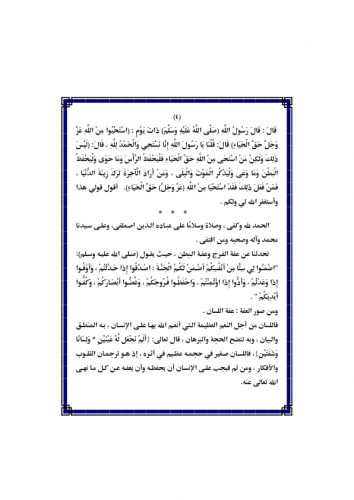 (٤)
قَالَ : قَالَ رَسُولُ اللَّهِ (صَلَّى اللَّهُ عَلَيْهِ وَسَلَّمَ) ذَاتَ يَوْمٍ : (اسْتَحْيُوا مِنَ اللَّهِ عَزَّ
وَجَلَّ حَقَّ الْحَيَاءِ) قَالَ: قُلْنَا يَا رَسُولَ اللَّهِ إِنَّا نَسْتَحِي وَالْحَمْدُ لِلَّهِ ، قَالَ: (لَيْسَ
ذَلِكَ وَلَكِنْ مَنْ اسْتَحَى مِنَ اللَّهِ حَقَّ الْحَيَاءِ فَلْيَحْفَظْ الرَّأْسَ وَمَا حَوَى وَلْيَحْفَظْ
الْبَطْنَ وَمَا وَعَى وَلْيَذْكُرِ الْمَوْتَ وَالْبِلَى ، وَمَنْ أَرَادَ الْآخِرَةَ تَرَكَ زِينَةَ الدُّنْيَا ،
فَمَنْ فَعَلَ ذَلِكَ فَقَدْ اسْتَحْيَا مِنَ اللَّهِ (عَزَّ وَجَلَّ) حَقَّ الْحَيَاءِ). أقول قولي هذا
وأستغفر الله لي ولكم .
* * *
الحمد لله وكفى ، وصلاةً وسلامًا على عباده الذين اصطفى، وعلى سيدنا
محمد وآله وصحبه ومن اقتفى .
تحدثنا عن عفة الفرج وعفة البطن ، حيث يقول (صلى الله عليه وسلم):
"اضْمَنُوا لِي سِتًّا مِنْ أَنْفُسِكُمْ أَضْمَنْ لَكُمُ الْجَنَّةَ : اصْدُقُوا إِذَا حَدَّثْتُمْ ، وَأَوْفُوا
إِذَا وَعَدْتُمْ ، وَأَدُّوا إِذَا اؤْتُمِنْتُمْ ، وَاحْفَظُوا فُرُوجَكُمْ ، وَغُضُّوا أَبْصَارَكُمْ ، وَكُفُّوا
أَيْدِيَكُمْ " .
ومن صور العفة : عفة اللسان .
فاللسان من أجل النعم العظيمة التي أنعم الله بها على الإنسان ، به المنطق
والبيان ، وبه تتضح الحجة والبرهان ، قال تعالى: {أَلَمْ نَجْعَل لَّهُ عَيْنَيْنِ * وَلِسَانًا
وَشَفَتَيْنِ} ، فاللسان صغير في حجمه عظيم في أثره ، إذ هو ترجمان القلوب
والأفكار ، ومن ثم فيجب على الإنسان أن يحفظه وأن يعفه عن كل ما نهى
الله تعالى عنه.